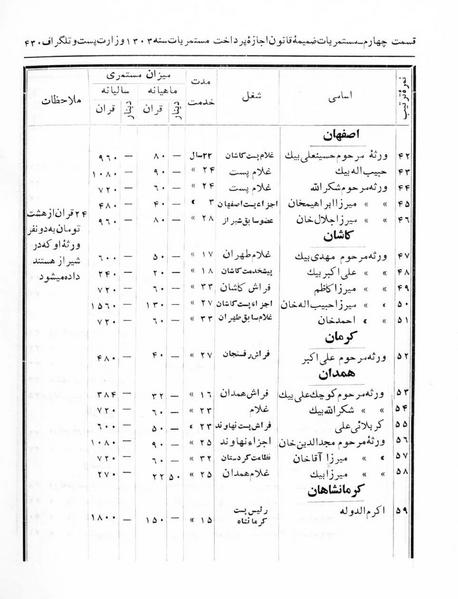 قسمت چهارم ـ مستمریات ضمیمهٔ قانون اجازهٔ پرداخت مستمریات سنه ۱۳۰۳ وزارت پست و تلگراف ۴۳۰
نمرهٔ ترتیب | اساسی | شغل | مدت خدمت | میزان مستمری | ملاحظات
ماهیانه | سالیانه
قران | دینار | قران | دینار
اصفهان
۴۲ ورثهٔ مرحوم حسینعلی بیك | غلام پست کاشان | ۲۲ سال | ۸۰ | — | ۹۶۰ | —
۴۳ حبیب‌اله بیك | غلام پست | ۲۴ » | ۹۰ | — | ۱۰۸۰ | —
۴۴ ورثهٔ مرحوم شکرالله | غلام پست | ۲۴ » | ۶۰ | — | ۷۲۰ | —
۴۵ » » میرزا ابراهیمخان | اجزاء پست اصفهان | ۳ » | ۴۰ | — | ۴۸۰ | —
۴۶ » » میرزا جلال خان | عضو سابق شیراز | ۲۸ » | ۸۰ | — | ۹۶۰ | — | ۲۴ قران از هشت تومان به دو نفر ورثهٔ او که در شیراز هستند داده میشود
کاشان
۴۷ ورثه مرحوم مهدی بیك | غلام طهران | ۱۷ » | ۵۰ | — | ۶۰۰ | —
۴۸ » » علی اکبر بیك | پیشخدمت کاشان | ۱۸ » | ۲۰ | — | ۲۴۰ | —
۴۹ » » میرزا کاظم | فراش کاشان | ۳۳ » | ۶۰ | — | ۷۲۰ | —
۵۰ » » میرزا حبیب اله خان | اجزاء پست کاشان | ۲۷ » | ۱۳۰ | — | ۱۵۶۰ | —
۵۱ » » احمد خان | غلام سابق طهران | ۳۳ » | ۶۰ | — | ۷۲۰ | —
کرمان
۵۲ ورثه مرحوم علی اکبر | فراش رفسنجان | ۲۷ » | ۴۰ | — | ۴۸۰ | —
همدان
۵۳ ورثه مرحوم کوچك علی بیك | فراش همدان | ۱۶ » | ۳۲ | — | ۳۸۴ | —
۵۴ » » شکر الله بیك | غلام | ۲۳ » | ۶۰ | — | ۷۲۰ | —
۵۵ کربلائی علی | فراش پست نهاوند | ۲۳ » | ۵۰ | — | ۶۰۰ | —
۵۶ ورثه مرحوم مجدالدین خان | اجزاء نهاوند | ۲۵ » | ۹۰ | — | ۱۰۸۰ | —
۵۷ » » میرزا آقا خان | نظامت کردستان | ۳۲ » | ۶۰ | — | ۷۲۰ | —
۵۸ » » میرزا بیك | غلام همدان | ۲۵ » | ۲۲ | ۵۰ | ۲۷۰ | —
کرمانشاهان
۵۹ اکرم الدوله | رئیس پست کرمانشاه | ۱۵ » | ۱۵۰ | — | ۱۸۰۰ | —